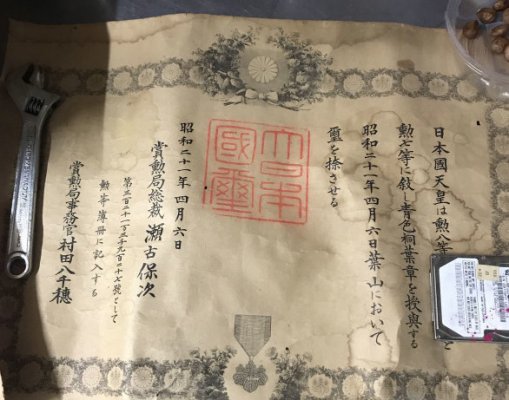 日本國天皇は勲八等 を
勲七等に叙し青色桐葉章を授與する
昭和二十一年四月六日葉山において
璽を捺させる
大日本國璽
昭和二十一年四月六日
賞勲局総裁 瀬古保次
第二百二十一万三千九百二十七號として
勲等簿册に記入する
賞勲局事務官村田八千穂